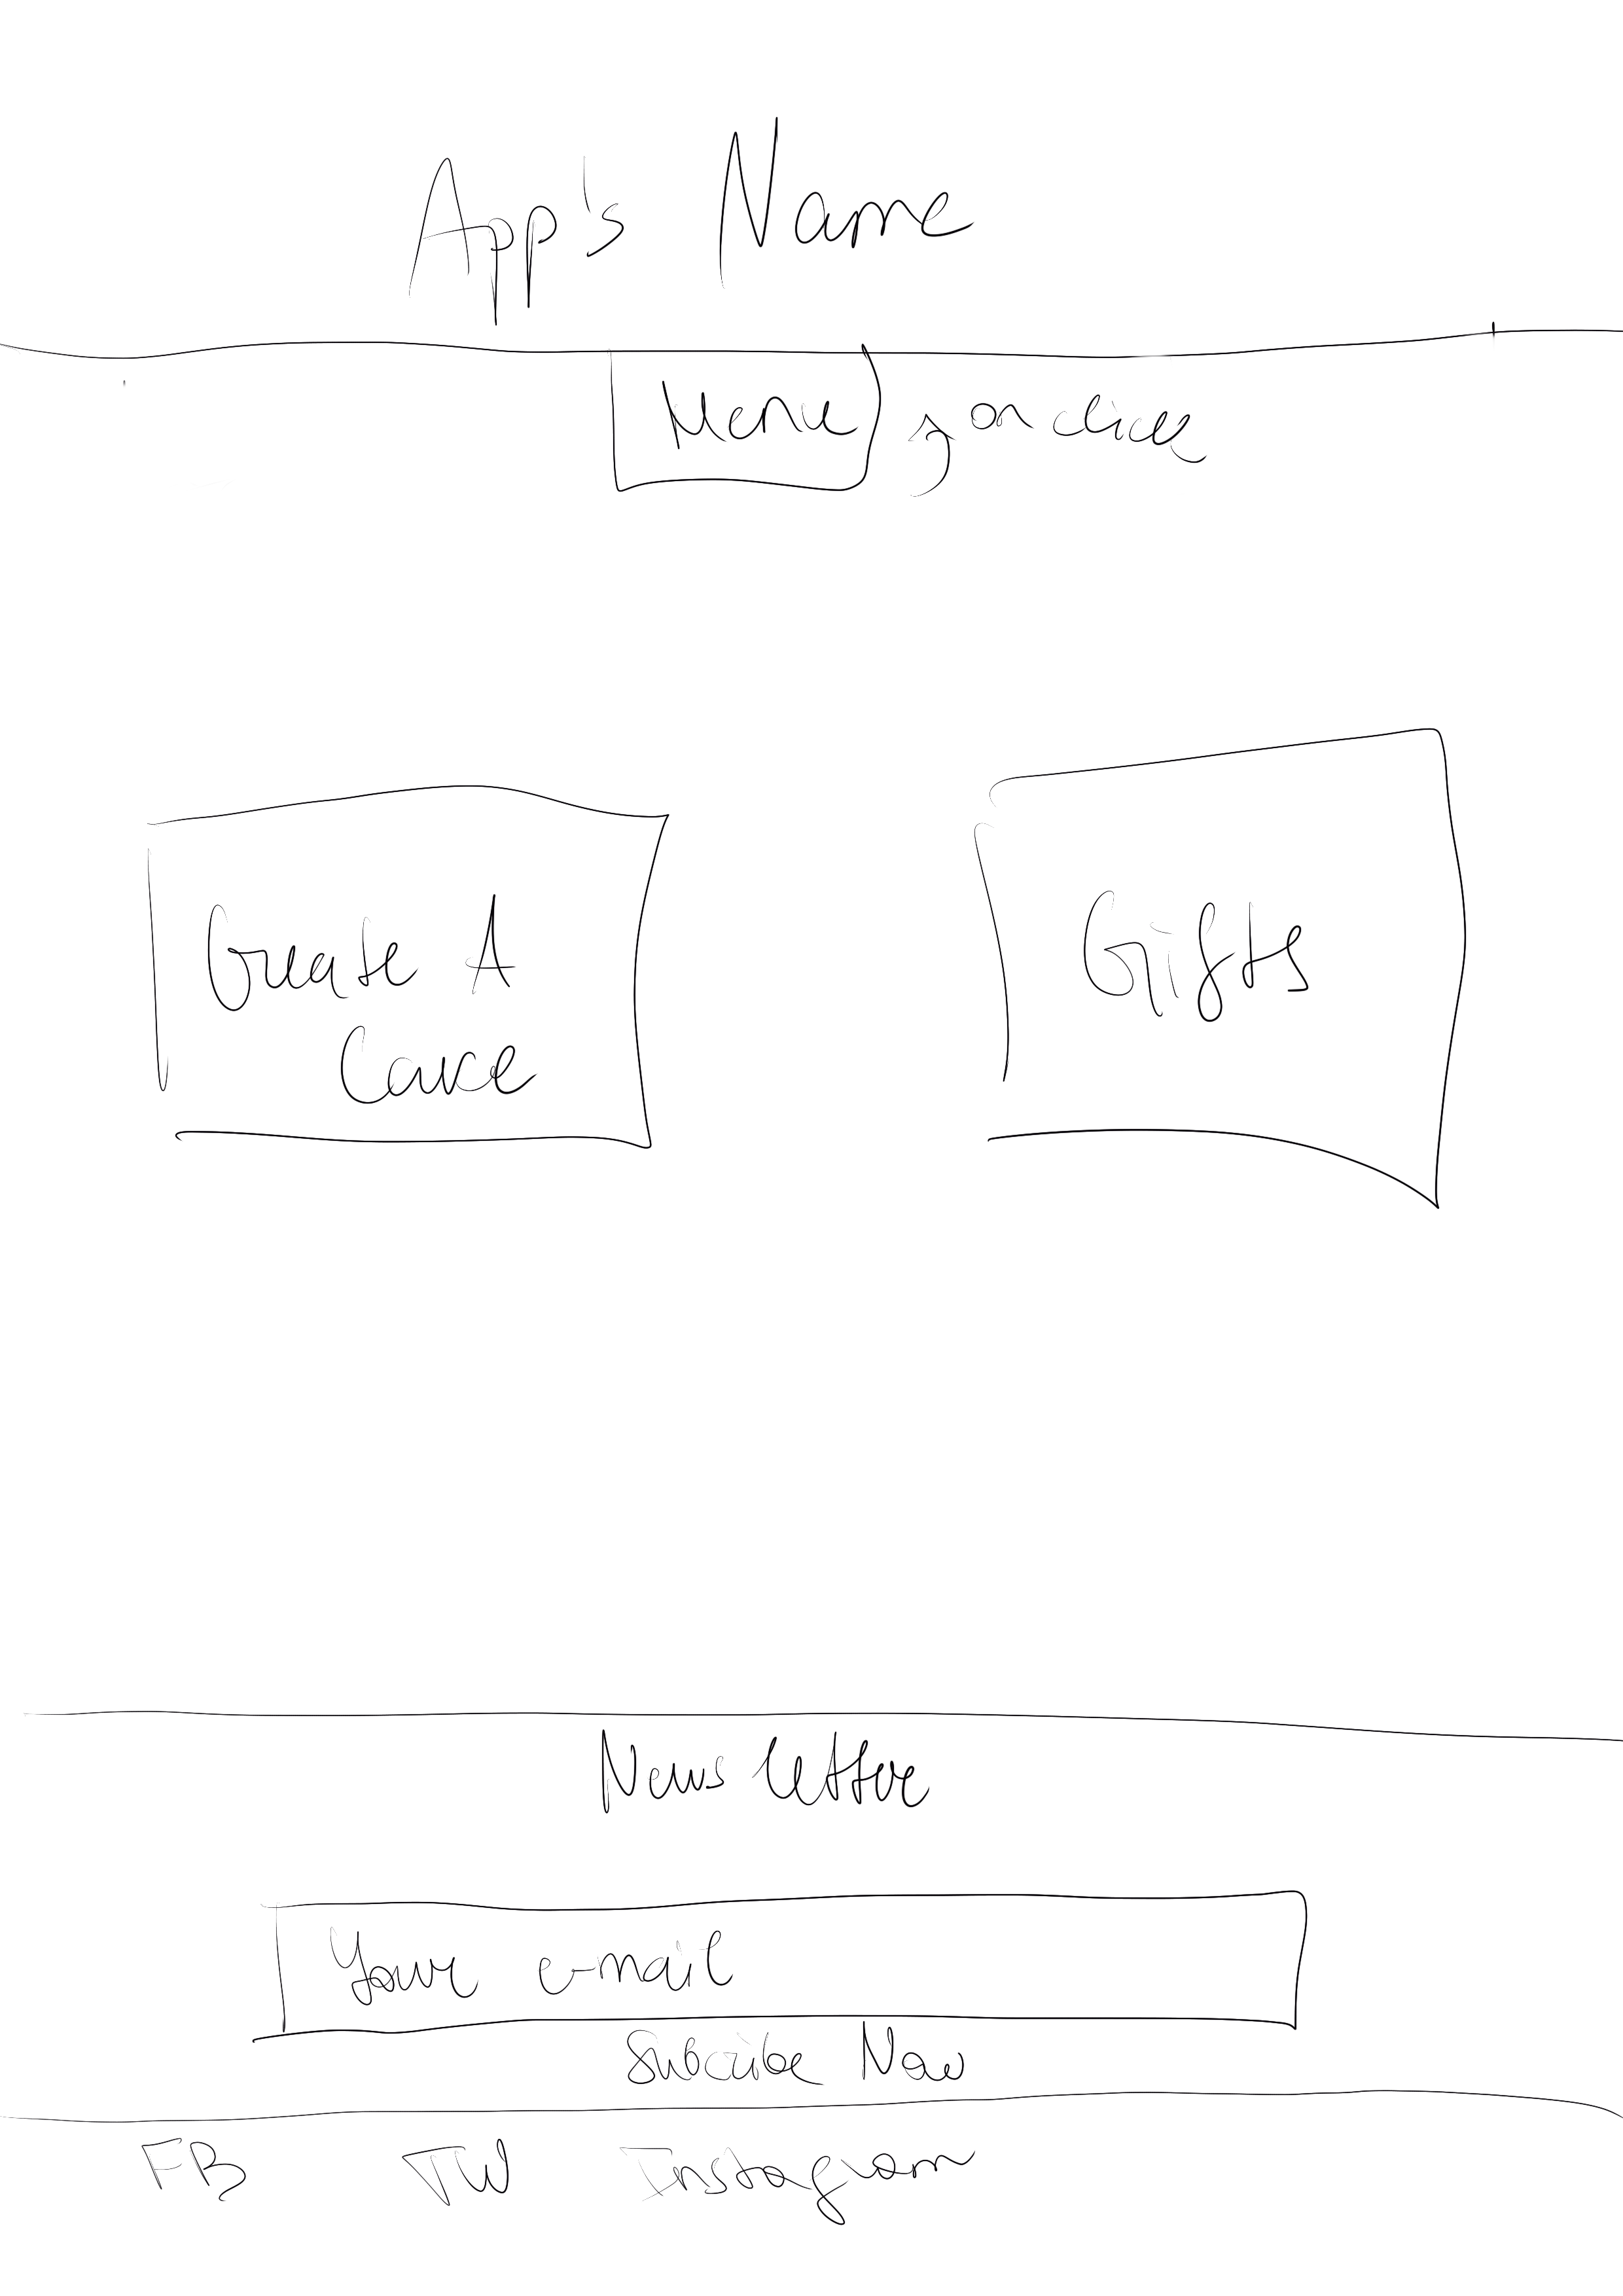 App's Name
Menu on click
Create A
Cake
Gifts
Newsletter
Your e-mail
Subcribe Now
FB TW Instagram